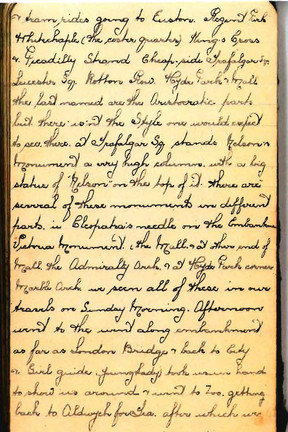 & tram rides going to Euston. Regent Park
Whitechaple (the coster quarter) King's Cross
& Picadilly Strand Cheap-side Trafalgar Sq.
Leicester Sq. Rotton Row. Hyde Park. Mall
the last named are the Aristocratic parts
but there isn't the Style one would expect
to see there. at Trafalgar Sq stands Nelson's
Monument a very high column. with a big
statue of "Nelson" on the top of it. There are
several of these monuments in different
parts. ie Cleopatra's needle on the Embankment
Victoria Monument, the Mall. & at the end of
Mall the Admiralty Arch. & at Hyde Park corner
Marble Arch we seen all of these in our
travels on Sunday Morning. Afternoon
went to the along embankment
as far as London Bridge & back to City
& Girl guide (young lady) took us in hand
to show us around & went to Zoo. getting
back to Aldwych for Tea. after which we